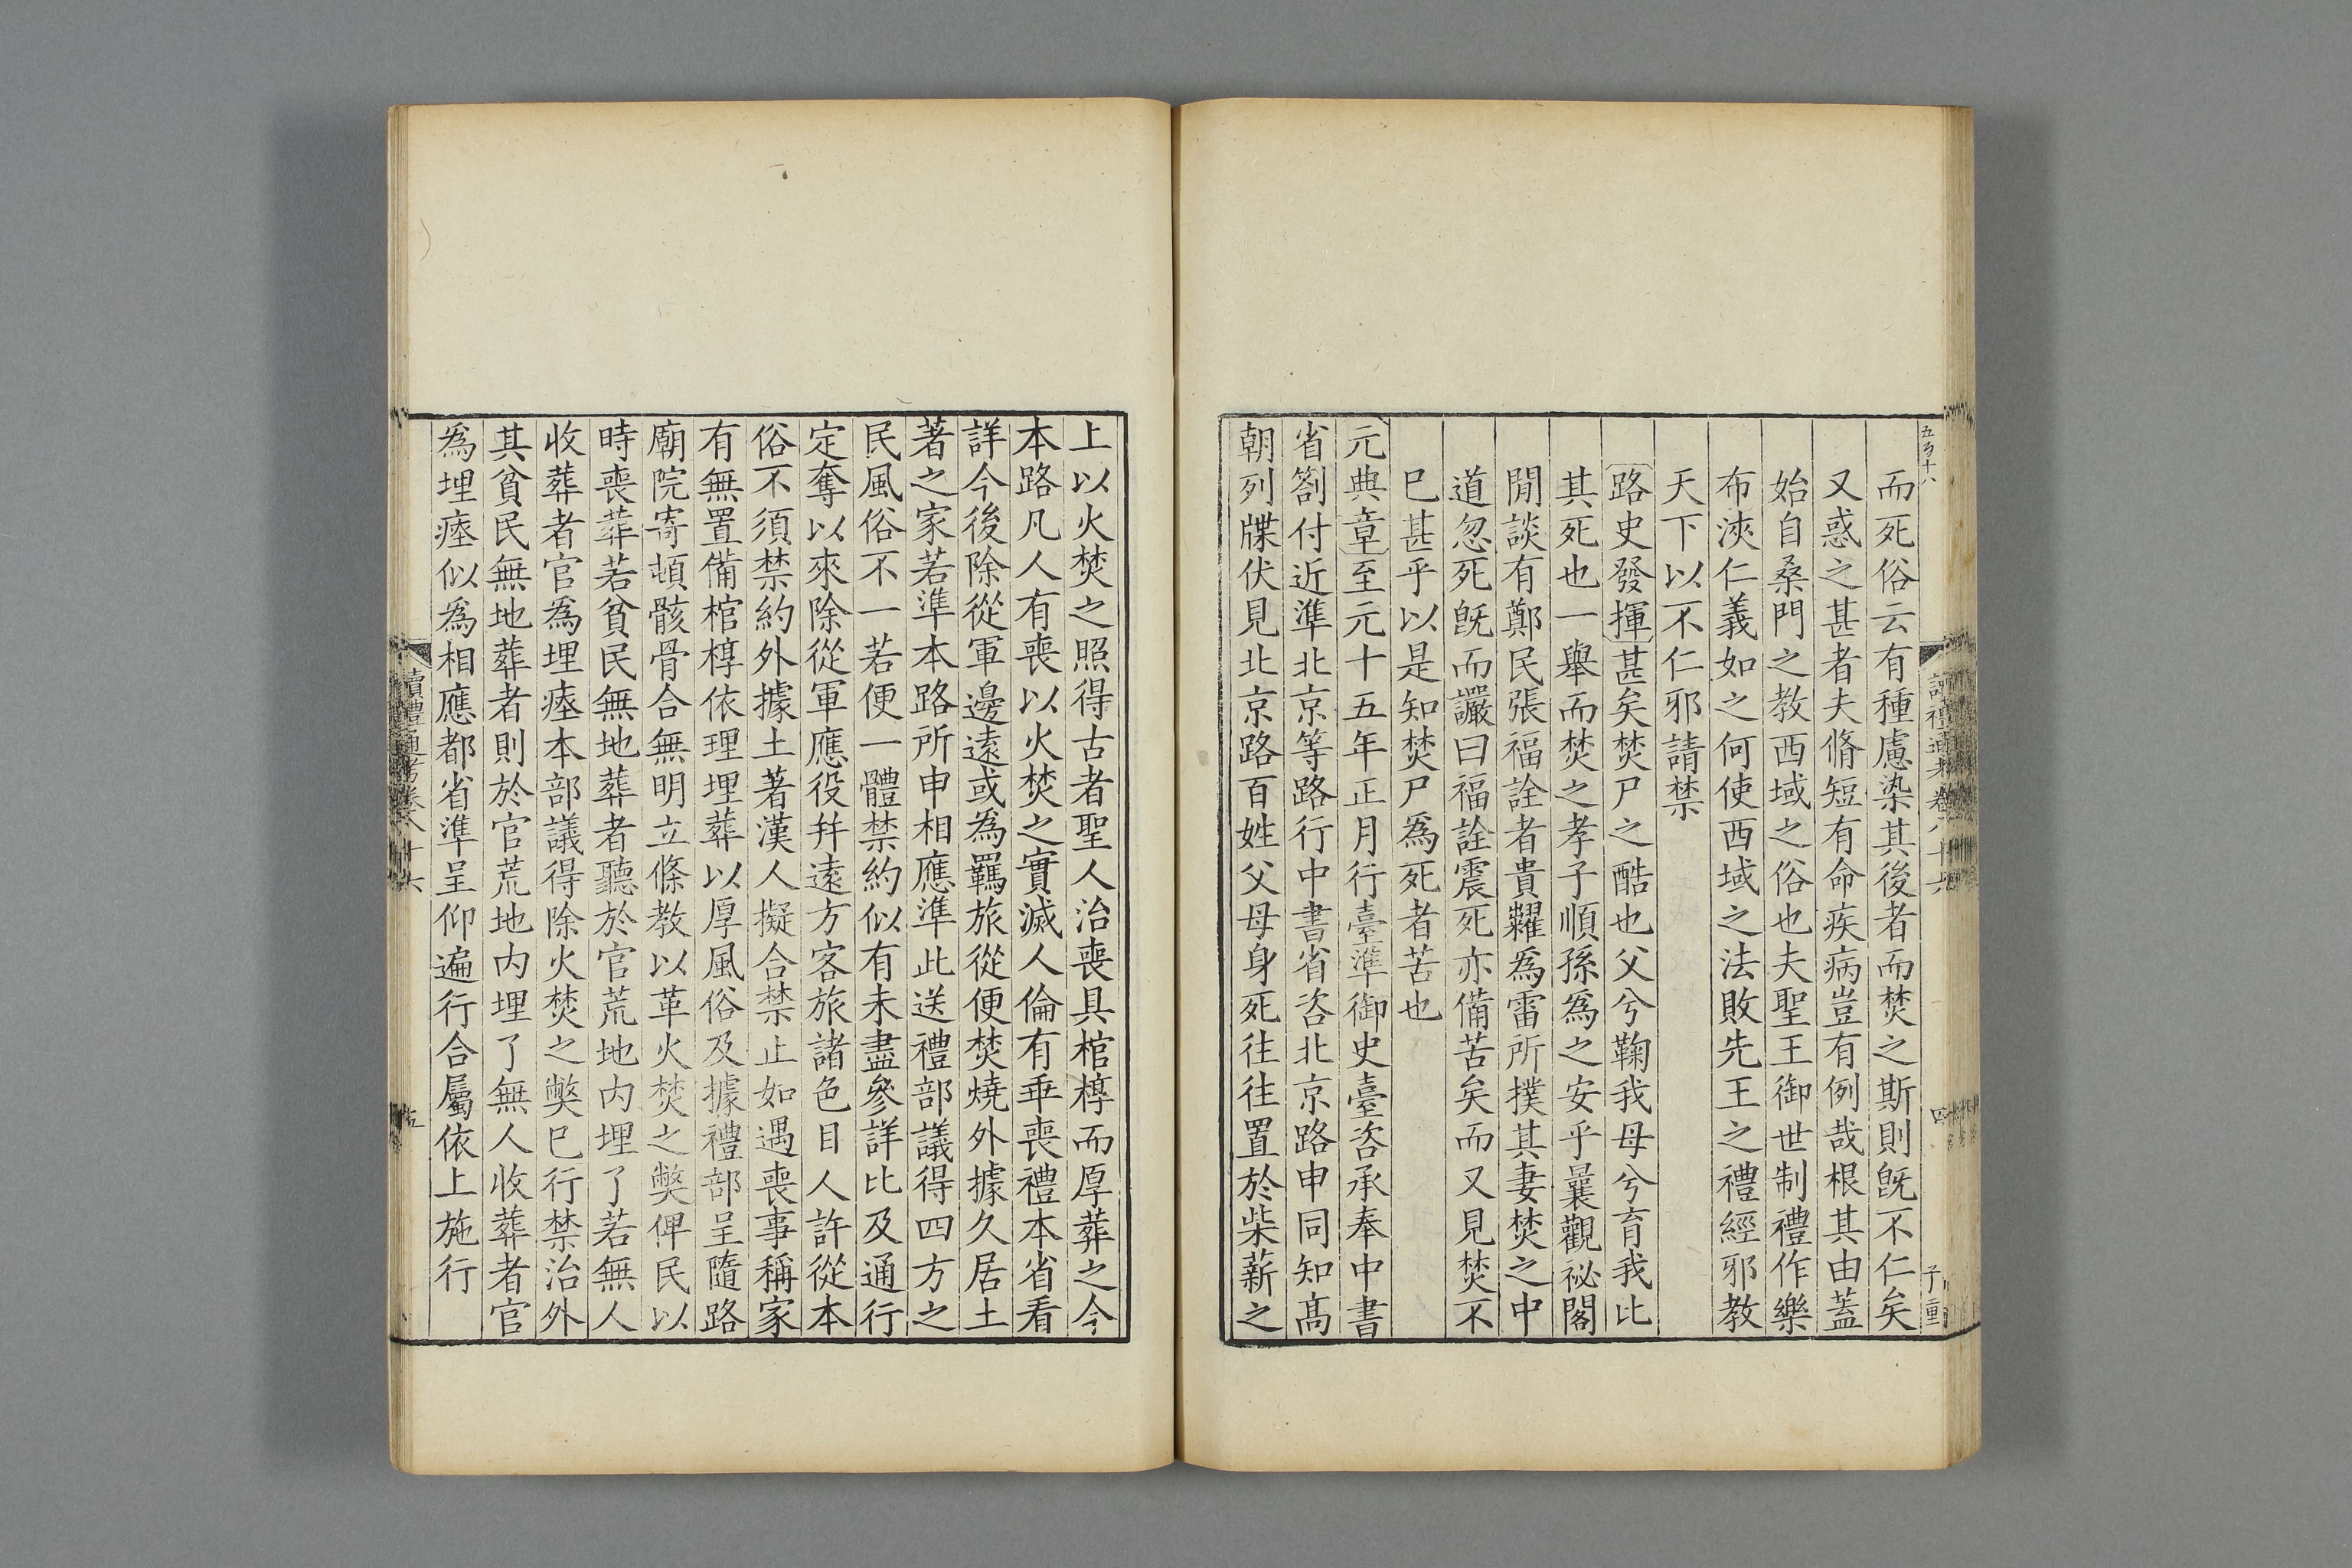 五百十八
讀禮通考卷八十六
四
子重
而死俗云有種慮染其後者而焚之斯則旣不仁矣
又惑之甚者夫脩短有命疾病豈有例哉根其由蓋
始自桑門之教西域之俗也夫聖王御世制禮作樂
布浹仁義如之何使西域之法敗先王之禮經邪教
天下以不仁邪請禁
路史發揮甚矣焚尸之酷也父兮鞠我母兮育我比
其死也一舉而焚之孝子順孫爲之安乎曩觀祕閣
閒談有鄭民張福詮者貴糶爲雷所撲其妻焚之中
道忽死旣而讝曰福詮震死亦備苦矣而又見焚不
已甚乎以是知焚尸爲死者苦也
元典章至元十五年正月行臺準御史臺咨承奉中書
省劄付近準北京等路行中書省咨北京路申同知高
朝列牒伏見北京路百姓父母身死往往置於柴薪之
上以火焚之照得古者聖人治喪具棺槨而厚葬之今
本路凡人有喪以火焚之實滅人倫有乖喪禮本省看
詳今後除從軍邊遠或為羈旅從便焚燒外據久居土
著之家若準本路所申相應準此送禮部議得四方之
民風俗不一若便一體禁約似有未盡參詳比及通行
定奪以來除從軍應役幷遠方客旅諸色目人許從本
俗不須禁約外據土著漢人擬合禁止如遇喪事稱家
有無置備棺槨依理埋葬以厚風俗及據禮部呈隨路
廟院寄頓骸骨合無明立條教以革火焚之獘俾民以
時喪葬若貧民無地葬者聽於官荒地内埋了若無人
收葬者官爲埋瘞本部議得除火焚之獘已行禁治外
其貧民無地葬者則於官荒地内埋了無人收葬者官
爲埋瘞似爲相應都省準呈仰遍行合屬依上施行
讀禮通考卷八十六
五